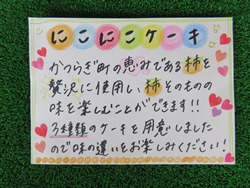 にこにこケーキ
かつらぎ町の恵みである柿を
贅沢に使用し、柿そのものの
味を楽しむことができます!!
3種類のケーキを用意しました
ので味の違いをお楽しみください!